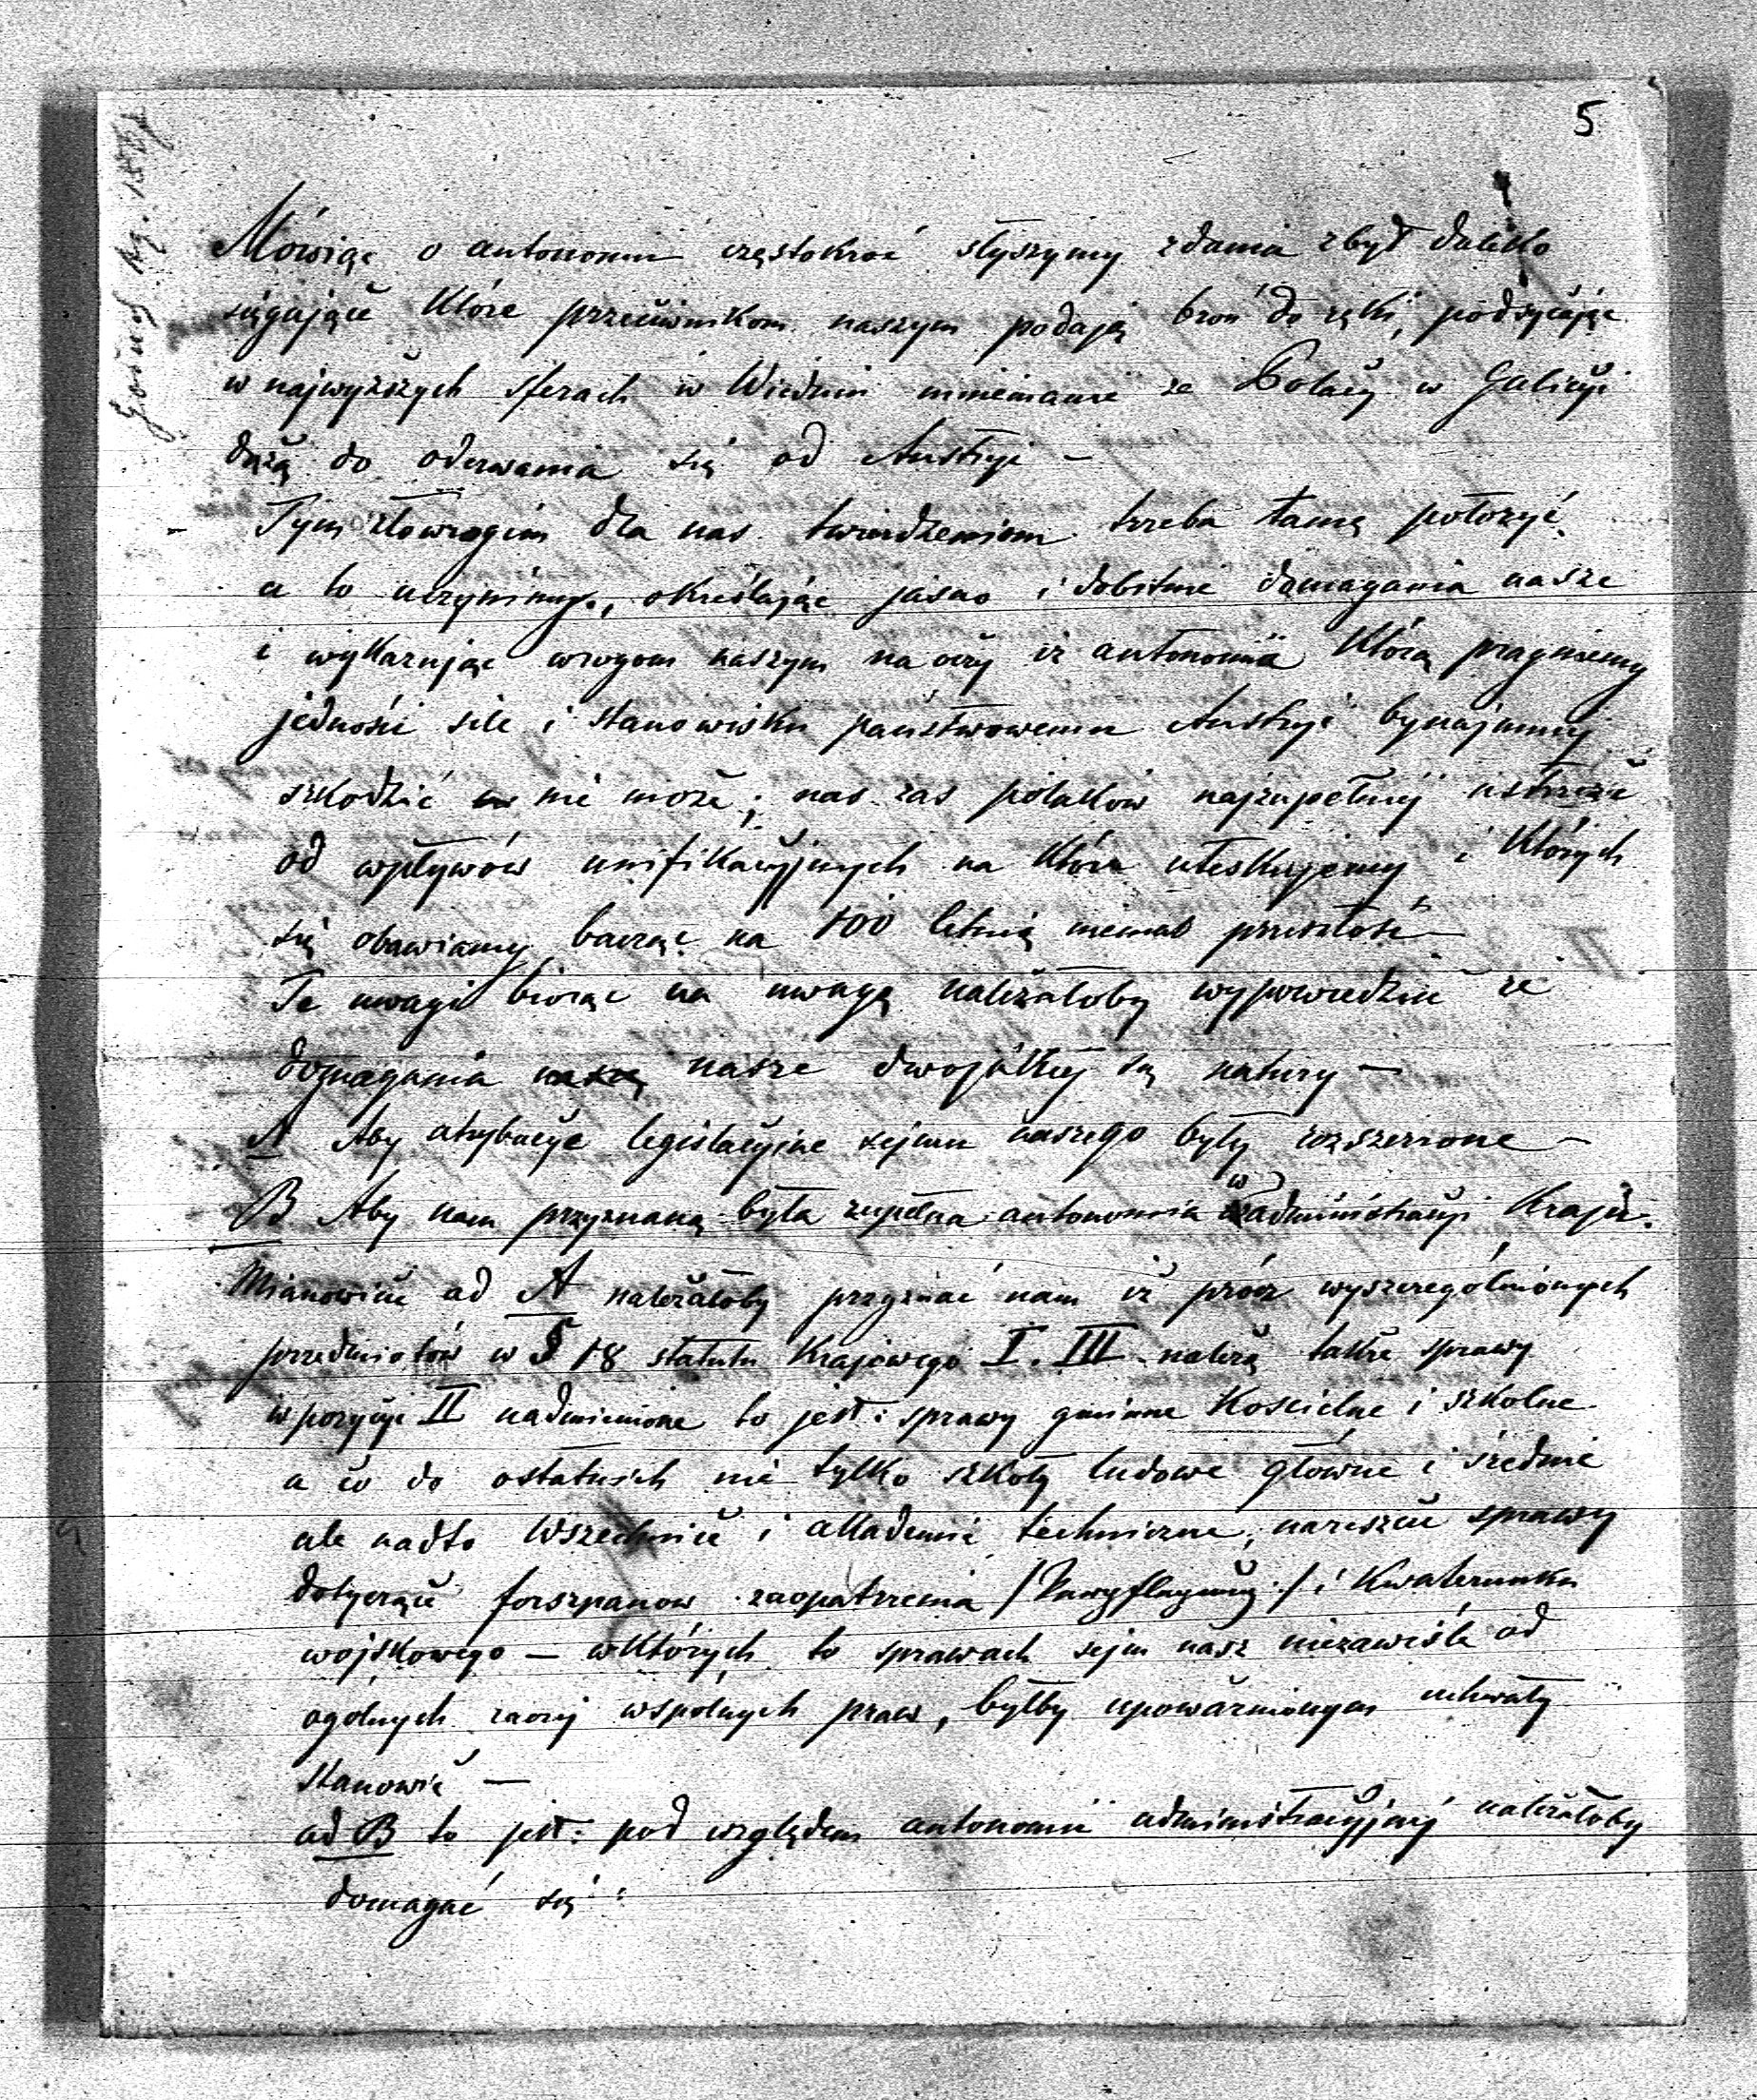 5
Mówiąc o autonomii częstokroć słyszymy zdania zbyt daleko
sięgające które przeciwnikom naszym podają broń do ręki, podsycając
w najwyższych sferach w Wiedniu mniemanie ze Polacy w Galicyi
dążą do oderwania się od Austryi —
Tym złowrogim dla nas twierdzeniom trzeba tamę położyć
a to uczynimy, określając jasno i dobitnie domagania nasze
i wykazując wrogom naszym na oczy iż autonomia którą pragniemy
jedności sile i stanowisku państwowemu Austryi bynajmniej
szkodzić nie może; nas zas polaków najzupełniej ustrzeże
od wpływów unifikacyjnych na które utyskujemy i których
się obawiamy bacząc na 100 letnią niemal przeszłość —
Te uwagi biorąc na uwagę należałoby wypowiedzieć że
domagania nasze dwojakiej są natury —
A Aby atrybucye legislacyjne sejmu naszego były rozszerzone —
B Aby nam przyznaną była zupełna autonomia w administracyi Kraju.
Mianowicie ad A należałoby przyznać nam iż prócz wyszczególnionych
przedmiotów w § 18 statutu Krajowego I. III należą także sprawy
w pozycyi II nadmienione to jest: sprawy gminne Kościelne i szkolne
a co do ostatnich nie tylko szkoły ludowe główne i średnie
ale nadto Wszechnice i akademie techniczne, nareszcie sprawy
dotyczące forszpanow zaopatrzenia / / i Kwaterunku
wojskowego — w których to sprawach sejm nasz niezawiśle od
ogólnych raczej wspólnych praw, byłby upoważnionym uchwały
stanowić —
ad B to jest: pod względem autonomii administracyjnej należałoby
domagać się: